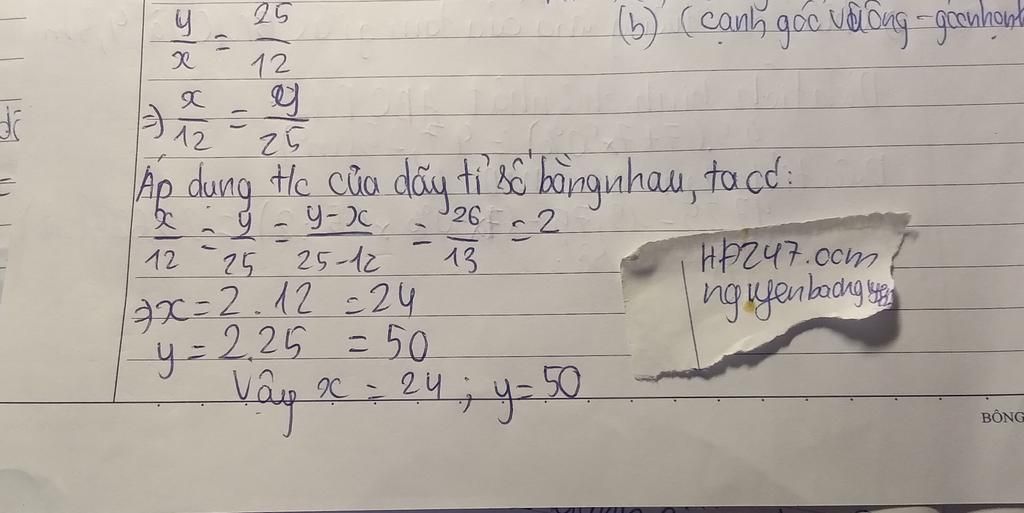 y/x = 25/12
(b) (cạnh góc vuông - góc nhọn
=> x/12 = y/25
Áp dụng t/c của dãy tỉ số bằng nhau, ta có:
x/12 = y/25 = y-x/25-12 = 26/13 = 2
=> x = 2 . 12 = 24
y = 2.25 = 50
Vậy x = 24 ; y = 50
HP247.com
BÔNG